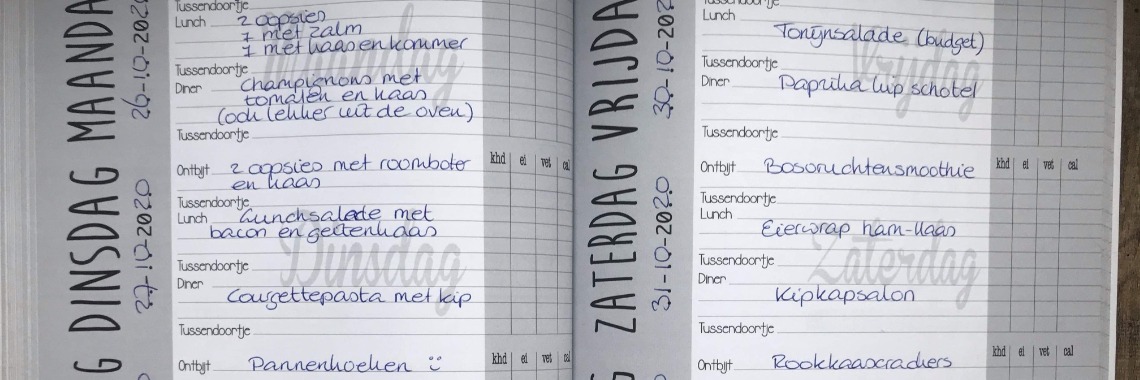 MAANDA
26-10-202
Tussendoortje
Lunch 2 oopsies
1 met zalm
1 met kaas en kommer
Tussendoortje
Diner champignons met
tomaten en kaas
(ook lekker uit de oven)
Tussendoortje
Maandag
DINSDAG
27-10-2020
khd ei vet cal
Ontbijt 2 oopsies met roomboter
en kaas
Tussendoortje
Lunch Lunchsalade met
bacon en geitenkaas
Tussendoortje
Diner
Courgettepasta met kip
Tussendoortje
Dinsdag
G
khd ei vet cal
Ontbijt Pannenkoeken
VRIJDA
30-10-202
Tussendoortje
Lunch
Tonijnsalade (budget)
Tussendoortje
Diner Paprika kip schotel
Tussendoortje
Vrijdag
ZATERDAG
31-10-2020
khd ei vet cal
Ontbijt Bosvruchtensmoothie
Tussendoortje
Lunch
Eierwrap ham-kaas
Tussendoortje
Diner
Kipkapsalon
Tussendoortje
Zaterdag
G
khd ei vet cal
Ontbijt Rookkaascrackers